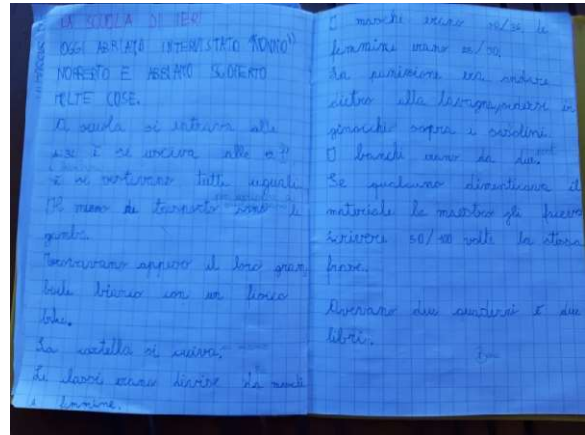 LA SCUOLA DI IERI
OGGI ABBIAMO INTERVISTATO "NONNO"
NORBERTO E ABBIAMO SCOPERTO
MOLTE COSE.
A scuola si entrava alle
e si usciva alle
e si vestivano tutti uguali
Il mezzo di trasporto sono le
gambe.
Indossavano appunto il loro grem
biule bianco con un fiocco
blu.
La cartella si cuciva.
Le classi erano divise da maschi
e femmine.
I maschi erano 30/36, le
femmine erano 25/30.
La punizione era andare
dietro alla lavagna, in
ginocchio sopra i
I banchi erano da due.
Se qualcuno dimenticava il
materiale la maestra gli faceva
scrivere 50/100 volte la stessa
frase.
Avevano due quaderni e due
libri.